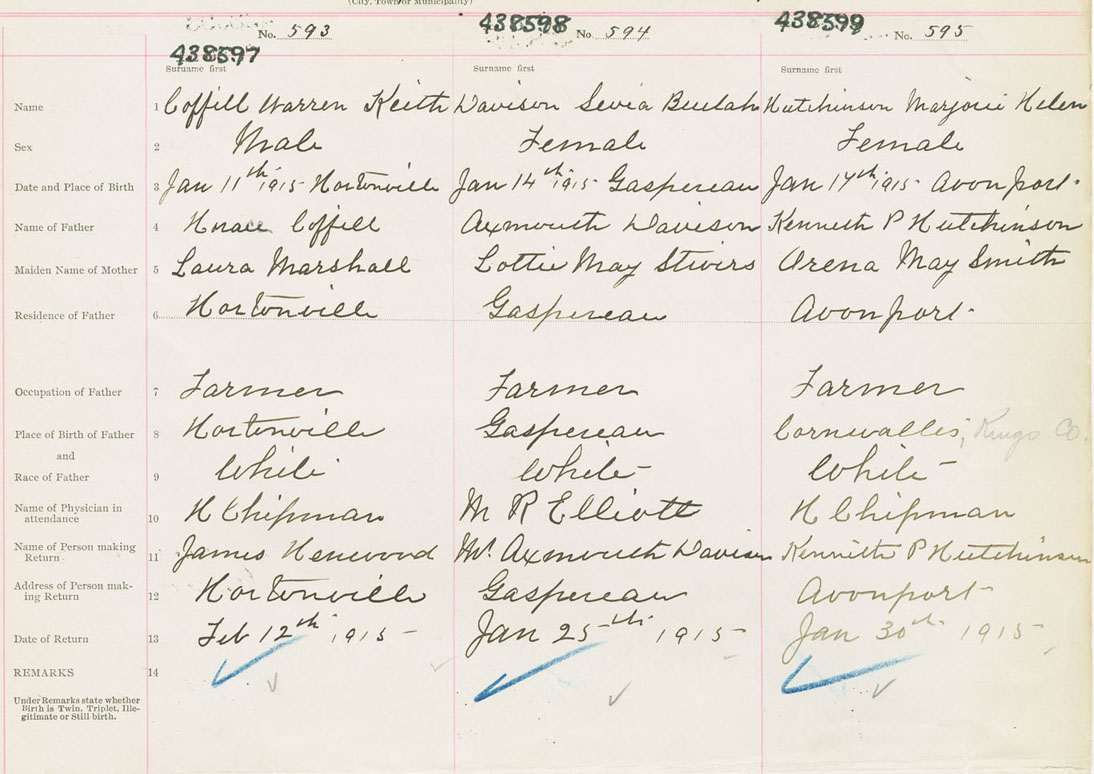 (City, Town or Municipality)
438597 No. 593 438598 No. 594 438599 No. 595
Surname first Surname first Surname first
Name 1 Coffill Warren Keith Davison Levia Beulah Hutchinson Marjorie Helen
Sex 2 Male Female Female
Date and Place of Birth 3 Jan 11th 1915 Hortonville Jan 14th 1915 Gaspereau Jan 17th 1915 Avonport.
Name of Father 4 Horace Coffill Axmouth Davison Kenneth P Hutchinson
Maiden Name of Mother 5 Laura Marshall Lottie May Stivirs Orena May Smith
Residence of Father 6 Hortonville Gaspereau Avonport.
Occupation of Father 7 Farmer Farmer Farmer
Place of Birth of Father 8 Hortonville Gaspereau Cornwallis; Kings Co.
and
Race of Father 9 White White White
Name of Physician in
attendance 10 H Chipman M R Elliott H Chipman
Name of Person making
Return 11 James Henwood Mr. Axmouth Davison Kenneth P Hutchinson
Address of Person mak-
ing Return 12 Hortonville Gaspereau Avonport
Date of Return 13 Feb 12th 1915 Jan 25th 1915 Jan 30th 1915
REMARKS 14
Under Remarks state whether
Birth is Twin, Triplet, Ille-
gitimate or Still birth.